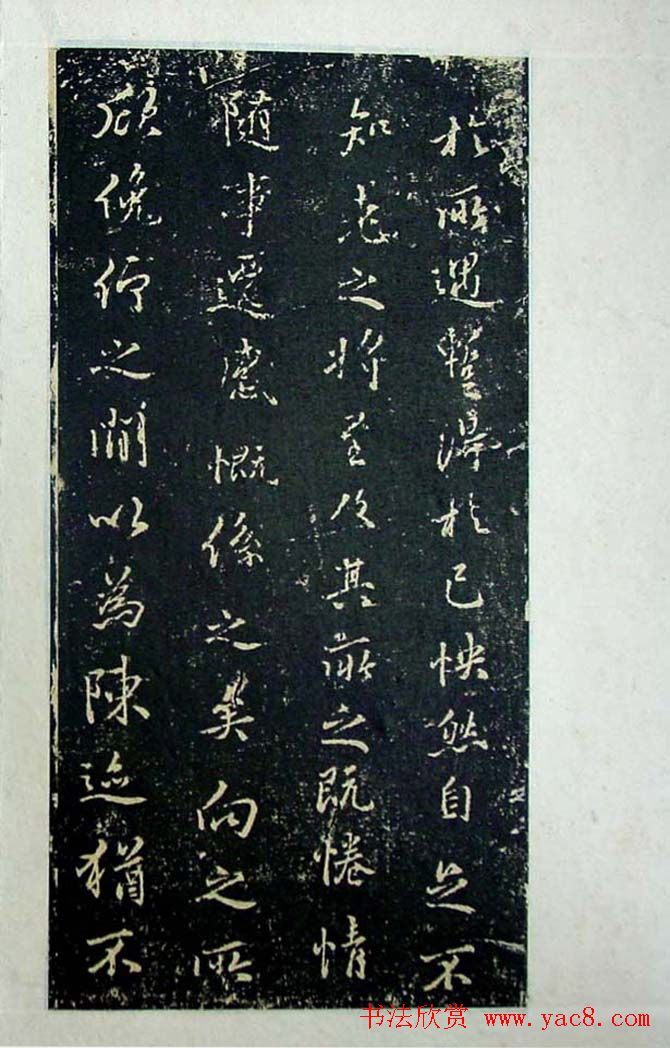 於所遇暫得於己怏然自足不
知老之將至及其所之既惓情
隨事遷感慨係之矣向之所
欣俛仰之閒以為陳迹猶不
书法欣赏 www.yac8.com